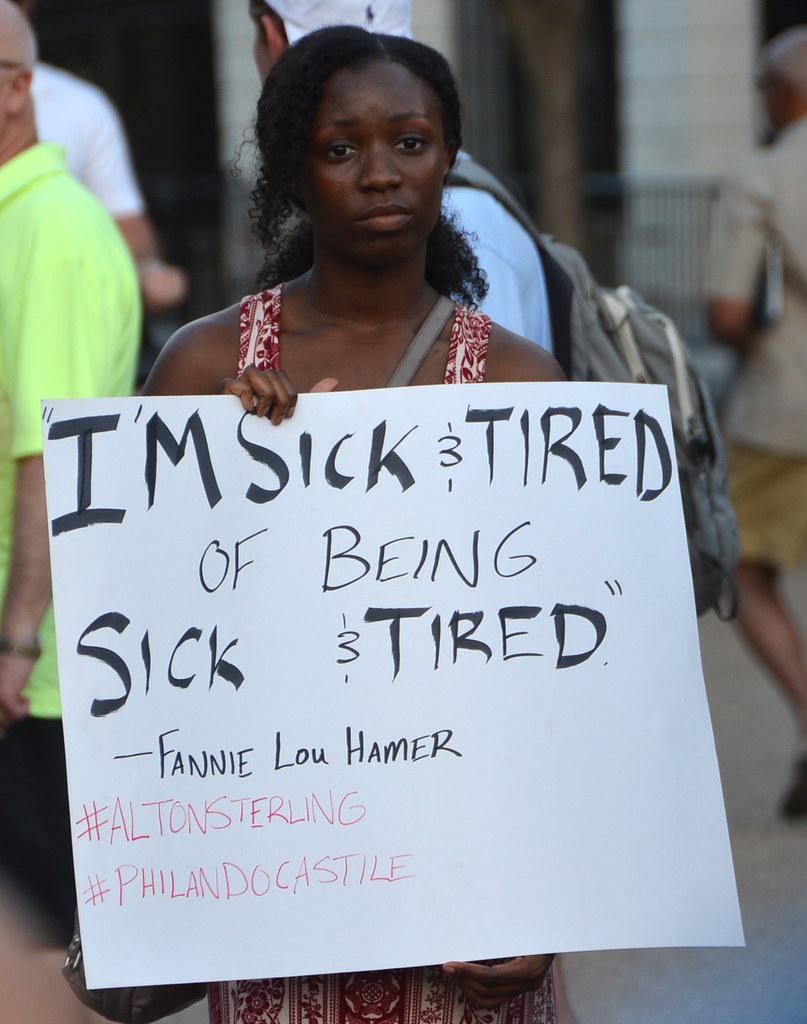 "I'M SICK & TIRED
OF BEING
SICK & TIRED."
—FANNIE LOU HAMER
#ALTONSTERLING
#PHILANDOCASTILE